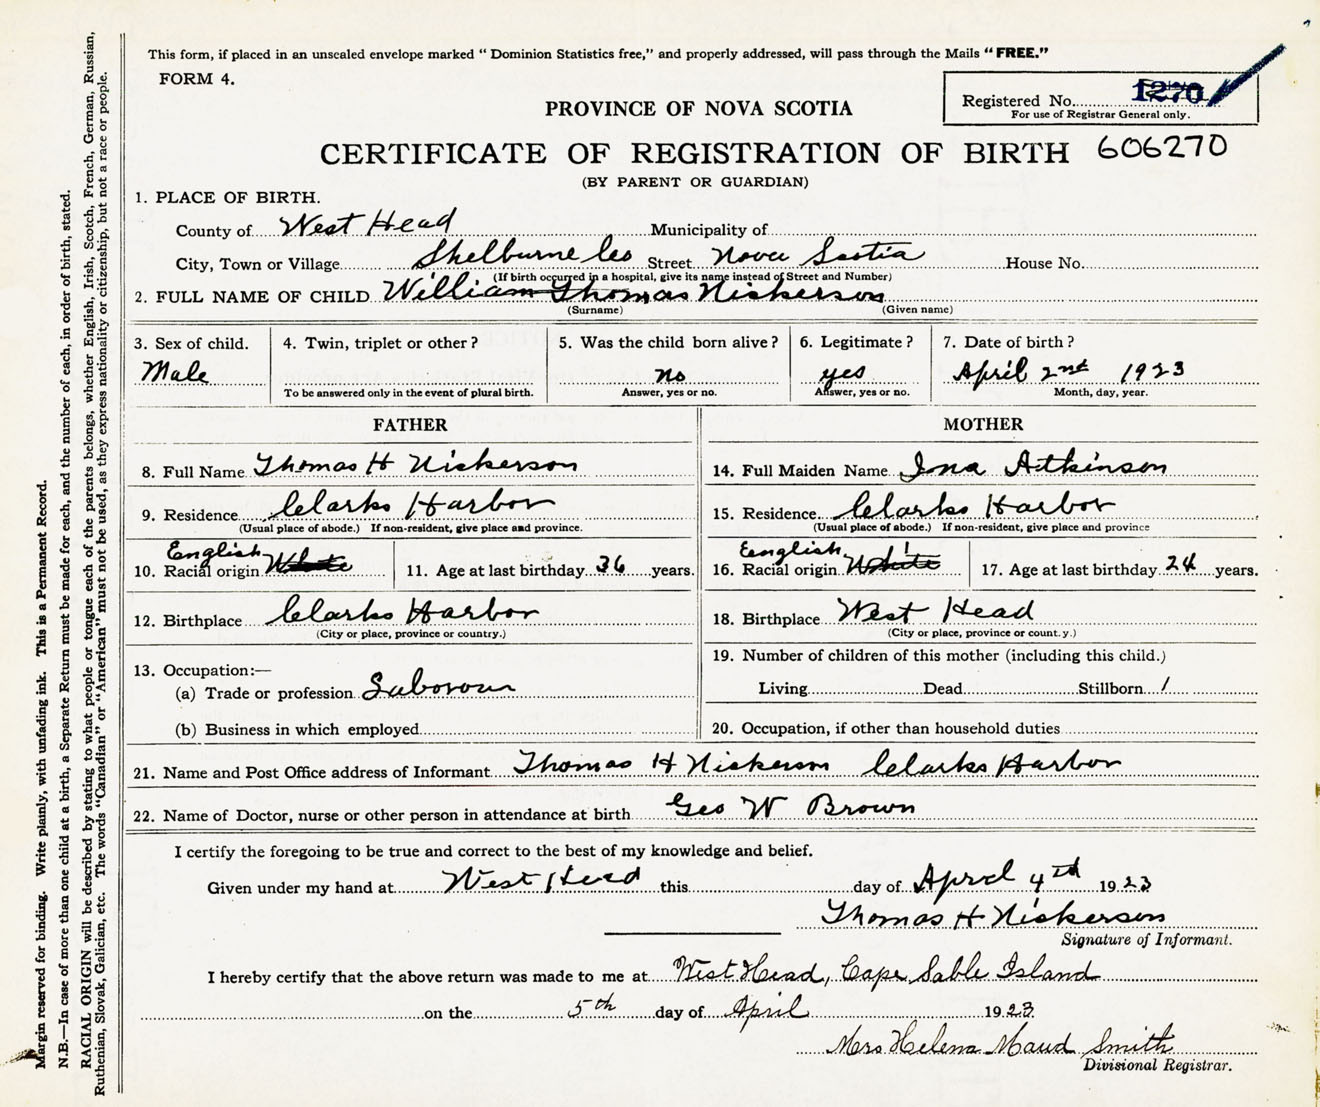 This form, if placed in an unscaled envelope marked " Dominion Statistics free," and properly addressed, will pass through the Mails " FREE."
FORM 4.
Registered No. 1270
For use of Registrar General only.
PROVINCE OF NOVA SCOTIA
CERTIFICATE OF REGISTRATION OF BIRTH 606270
(BY PARENT OR GUARDIAN)
1. PLACE OF BIRTH.
County of West Head Municipality of
City, Town or Village Shelburne Co Street Nova Scotia House No.
(If birth occurred in a hospital, give its name instead of Street and Number)
2. FULL NAME OF CHILD William Thomas Nickerson
(Surname) (Given name)
3. Sex of child. 4. Twin, triplet or other ? 5. Was the child born alive ? 6. Legitimate ? 7. Date of birth ?
Male no yes April 2nd 1923
To be answered only in the event of plural birth. Answer, yes or no. Answer, yes or no. Month, day, year.
FATHER MOTHER
8. Full Name Thomas H Nickerson 14. Full Maiden Name Ina Atkinson
9. Residence Clarks Harbor 15. Residence Clarks Harbor
(Usual place of abode.) If non-resident, give place and province. (Usual place of abode.) If non-resident, give place and province
English English
10. Racial origin White 11. Age at last birthday 36 years. 16. Racial origin White 17. Age at last birthday 24 years.
12. Birthplace Clarks Harbor 18. Birthplace West Head
(City or place, province or country.) (City or place, province or count.y.)
19. Number of children of this mother (including this child.)
13. Occupation:—
(a) Trade or profession Laborour Living Dead Stillborn 1
(b) Business in which employed 20. Occupation, if other than household duties
21. Name and Post Office address of Informant Thomas H Nickerson Clarks Harbor
22. Name of Doctor, nurse or other person in attendance at birth Geo W Brown
I certify the foregoing to be true and correct to the best of my knowledge and belief.
Given under my hand at West Head this day of April 4th 1923
Thomas H Nickerson
Signature of Informant.
I hereby certify that the above return was made to me at West Head, Cape Sable Island
on the 5th day of April 1923
Mrs Helena Maud Smith
Divisional Registrar.
Margin reserved for binding. Write plainly, with unfading ink. This is a Permanent Record.
N.B.—In case of more than one child at a birth, a Separate Return must be made for each, and the number of each, in order of birth, stated.
RACIAL ORIGIN will be described by stating to what people or tongue each of the parents belongs, whether English, Irish, Scotch, French, German, Russian,
Ruthenian, Slovak, Galician, etc. The words "Canadian" or "American" must not be used, as they express nationality or citizenship, but not a race or people.